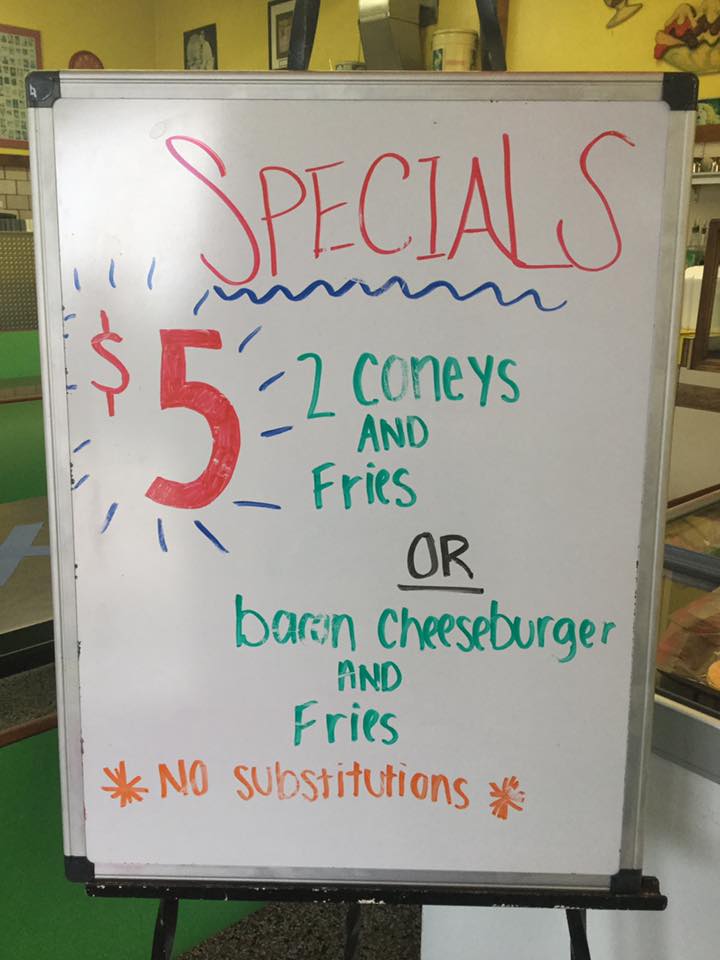 SPECIALS
$5
2 coneys
AND
Fries
OR
bacon cheeseburger
AND
Fries
* NO substitutions *